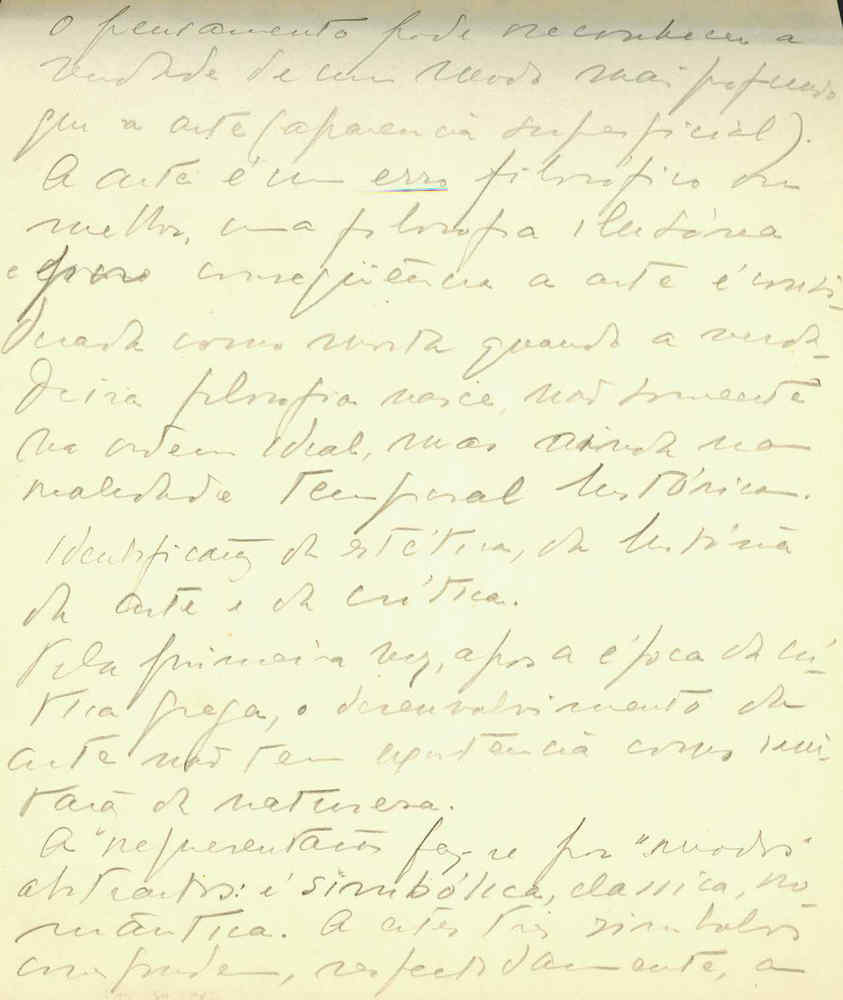 O pensamento pode reconhecer a
verdade de um modo mais profundo
que a arte (aparencia superficial).
A arte é um erro filosófico ou
melhor, uma filosofia ilusória
e como conseqüência a arte é consi-
derada como morta quando a verda-
deira filosofia nasce, não somente
na ordem ideal, mas ainda na
realidade temporal histórica.
Identificação da estética, da história
da arte e da crítica.
Pela primeira vez, apos a época da crí-
tica grega, o desenvolvimento da
arte não tem existência como imi-
tação da natureza.
A "representação faz-se por "modos"
abstractos: é simbólica, classica, ro
mântica. A estes tres simbolos
, respectivamente, a